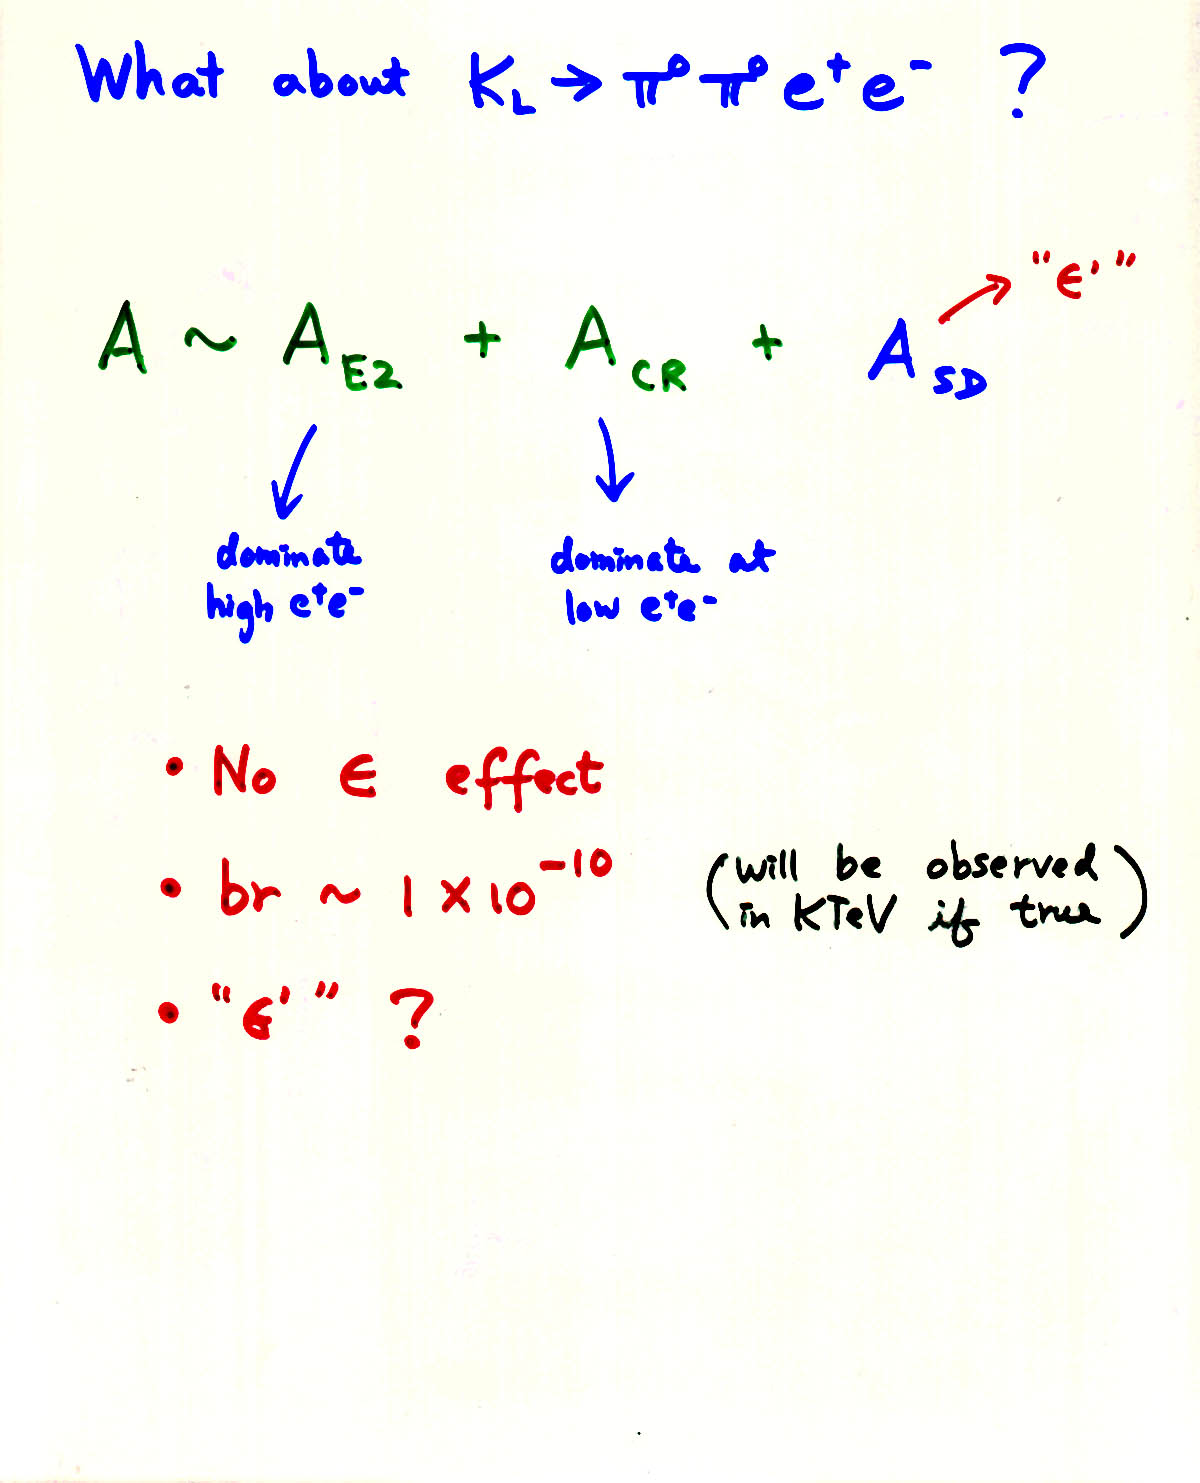 What about K_L → π⁰ π⁰ e⁺ e⁻ ?
"ϵ′"
A ~ A_E2 + A_CR + A_SD
dominate
high e⁺e⁻
dominate at
low e⁺e⁻
• No ϵ effect
• br ~ 1 × 10⁻¹⁰
(will be observed
in KTeV if true)
• "ϵ′" ?